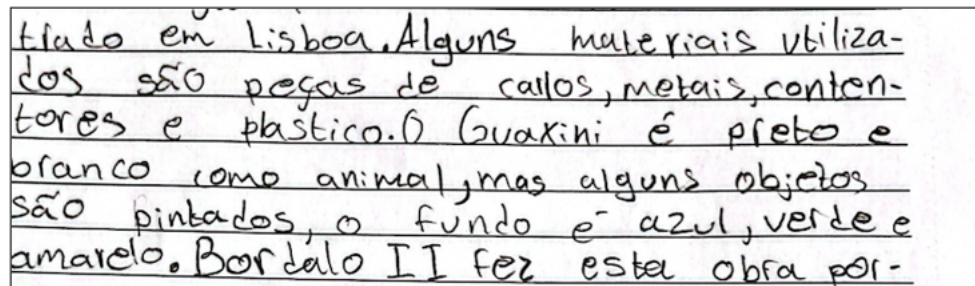 trado em Lisboa. Alguns materiais utiliza-
dos são peças de carros, metais, conten-
tores e plastico. O Guaxini é preto e
branco como animal, mas alguns objetos
são pintados, o fundo é azul, verde e
amarelo. Bordalo II fez esta obra por-